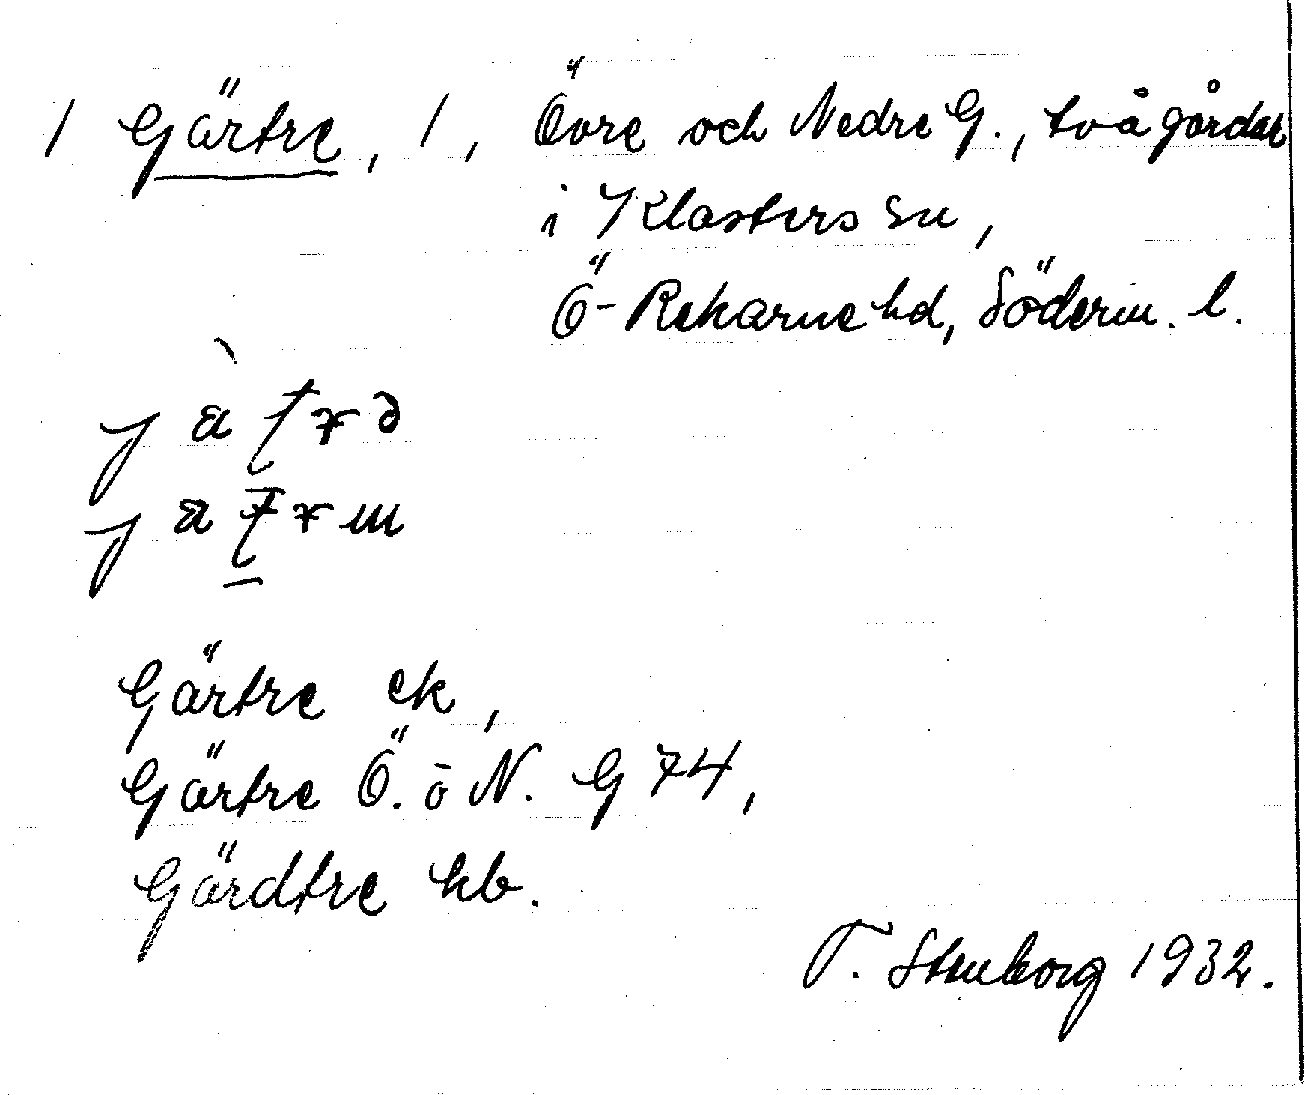 / Gärtre, /, Övre och Nedre G., två gårdar
i Klosters sn,
Ö-Rekarne hd, Söderm. l.
Gärtre ek,
Gärtre Ö. o N. G 74,
Gärdtre kb.
T. Stenborg 1932.